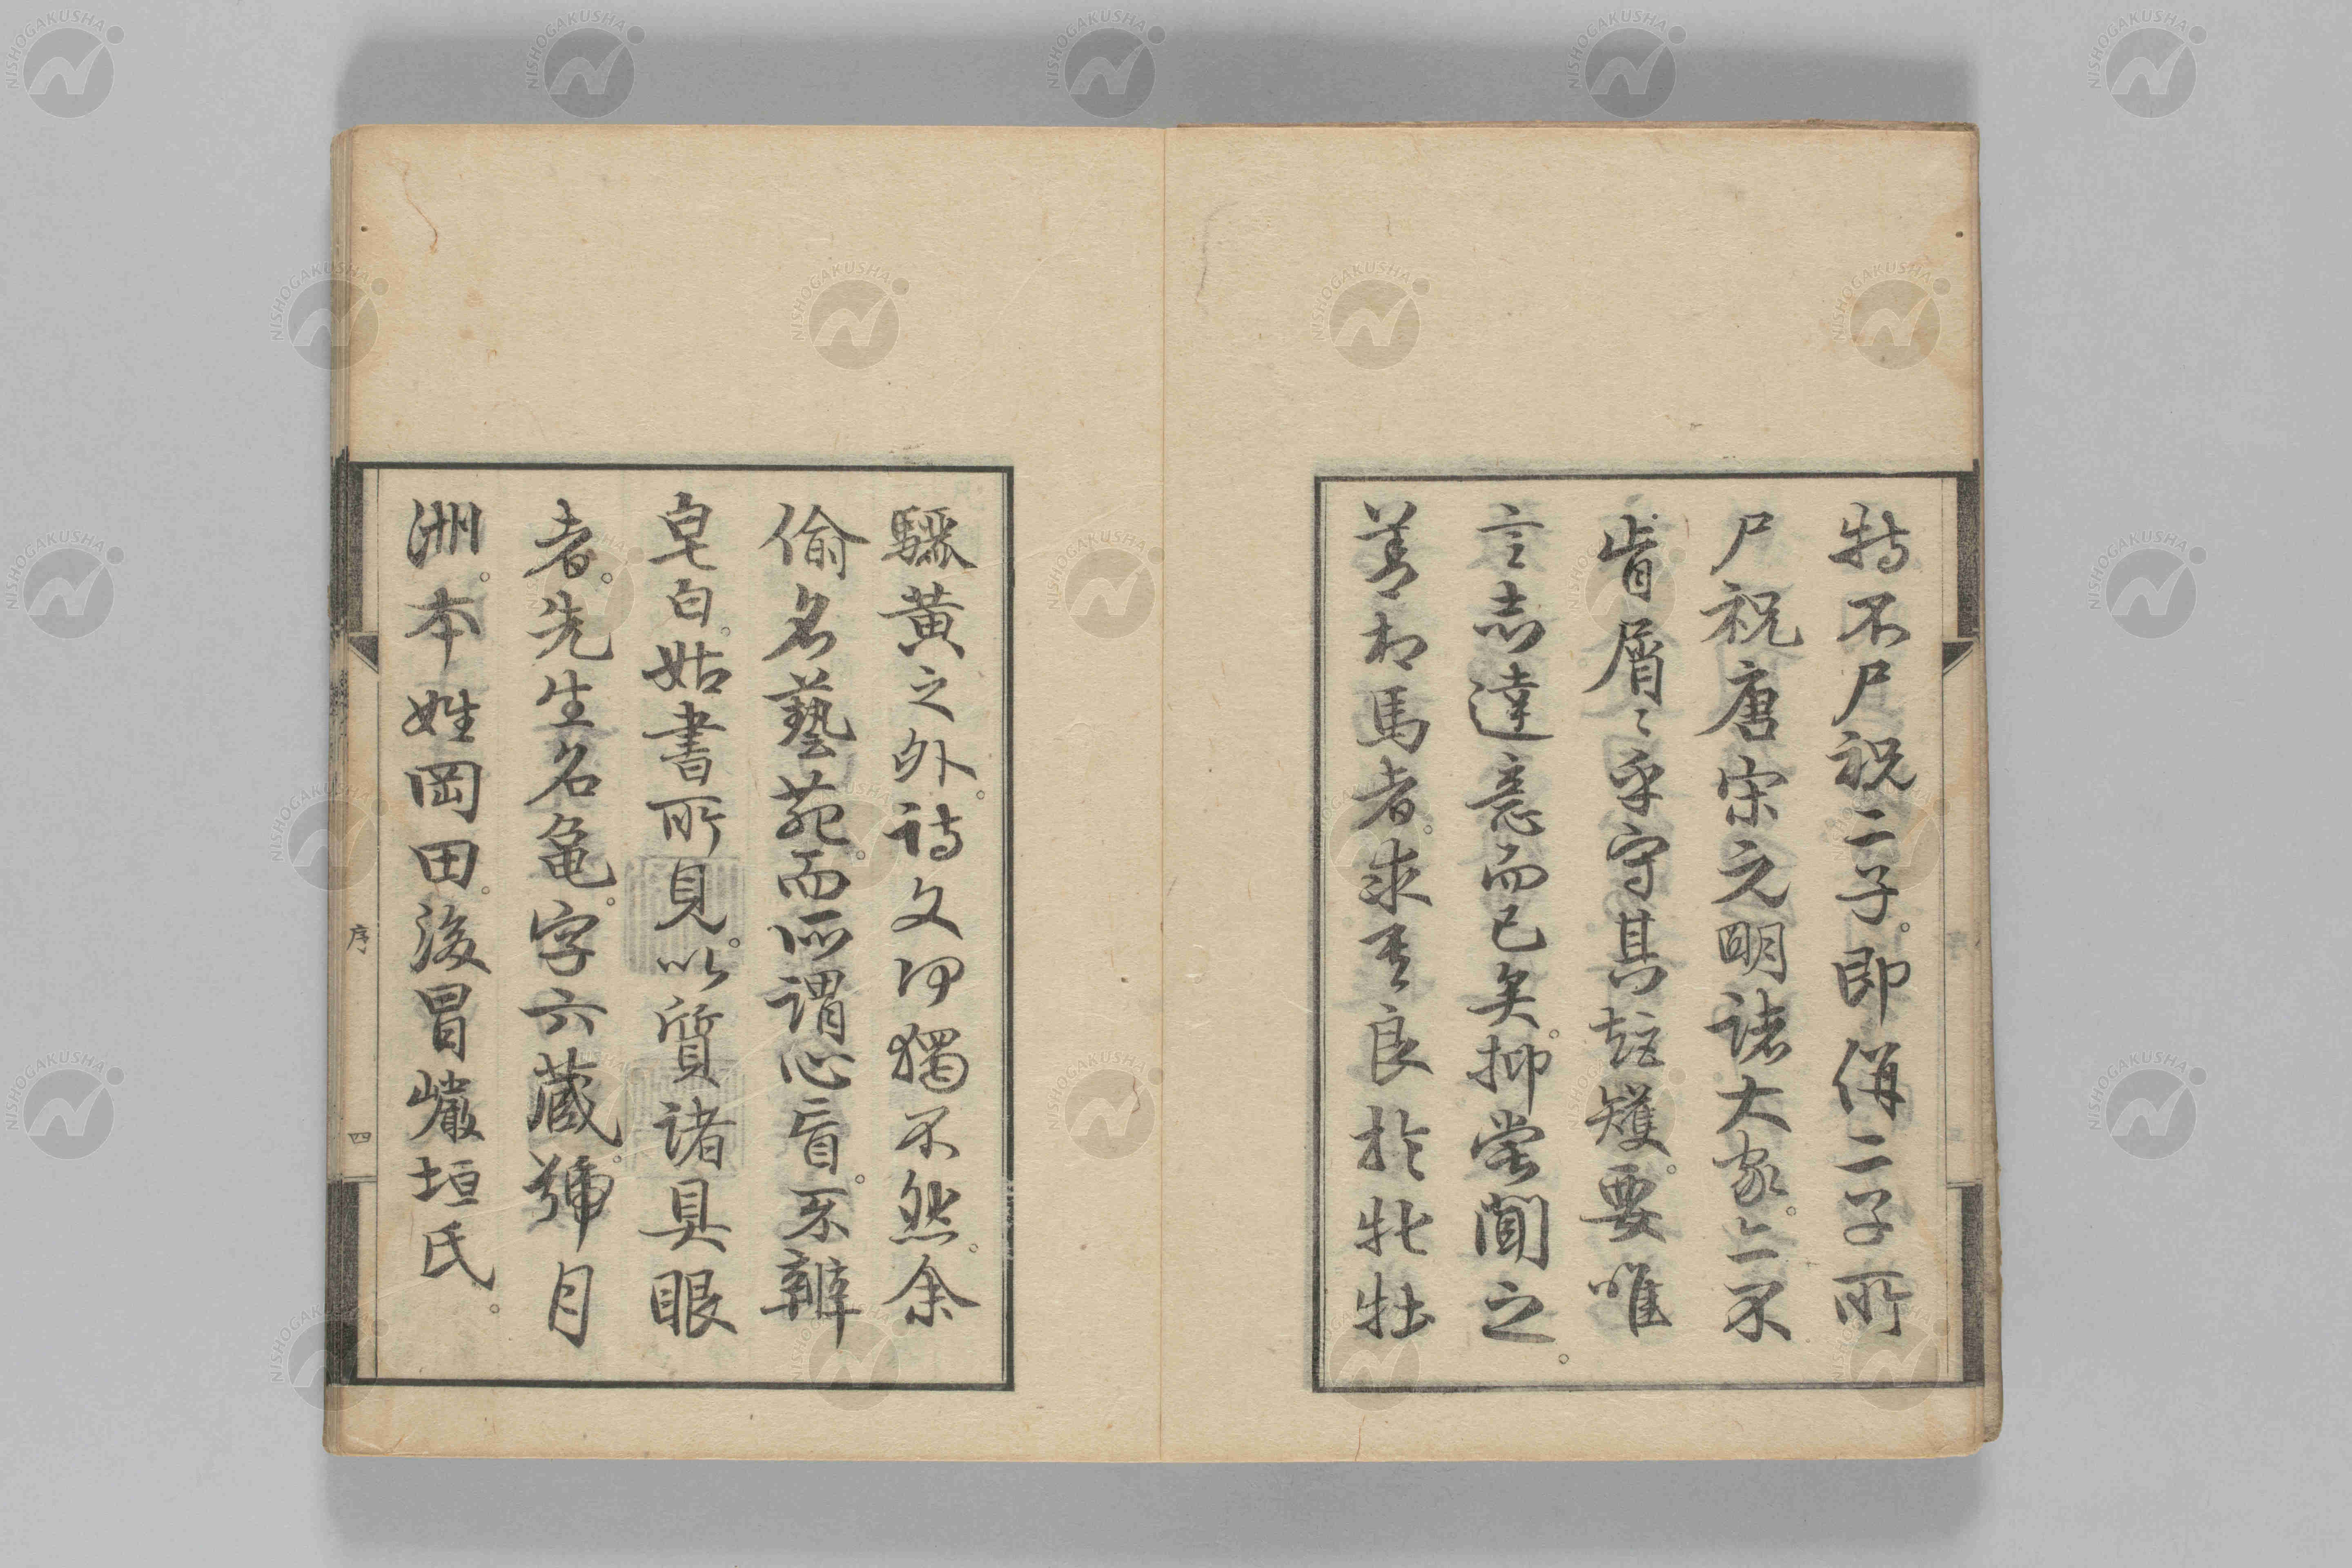 特不尸祝二子。即倂二子所
尸祝唐宋元明諸大家。亦不
肯屑〻乎守其矩矱。要唯
言志達意而已矣。抑嘗聞之。
善相馬者。求良於牝牡
驪黃之外。詩文何獨不然。余
偷名藝苑。而所謂心盲。不辨
皂白。姑書所見。以質諸具眼
者。先生名亀。字六蔵。號月
洲。本姓岡田。後冒巖垣氏。
序 四
NISHOGAKUSHA